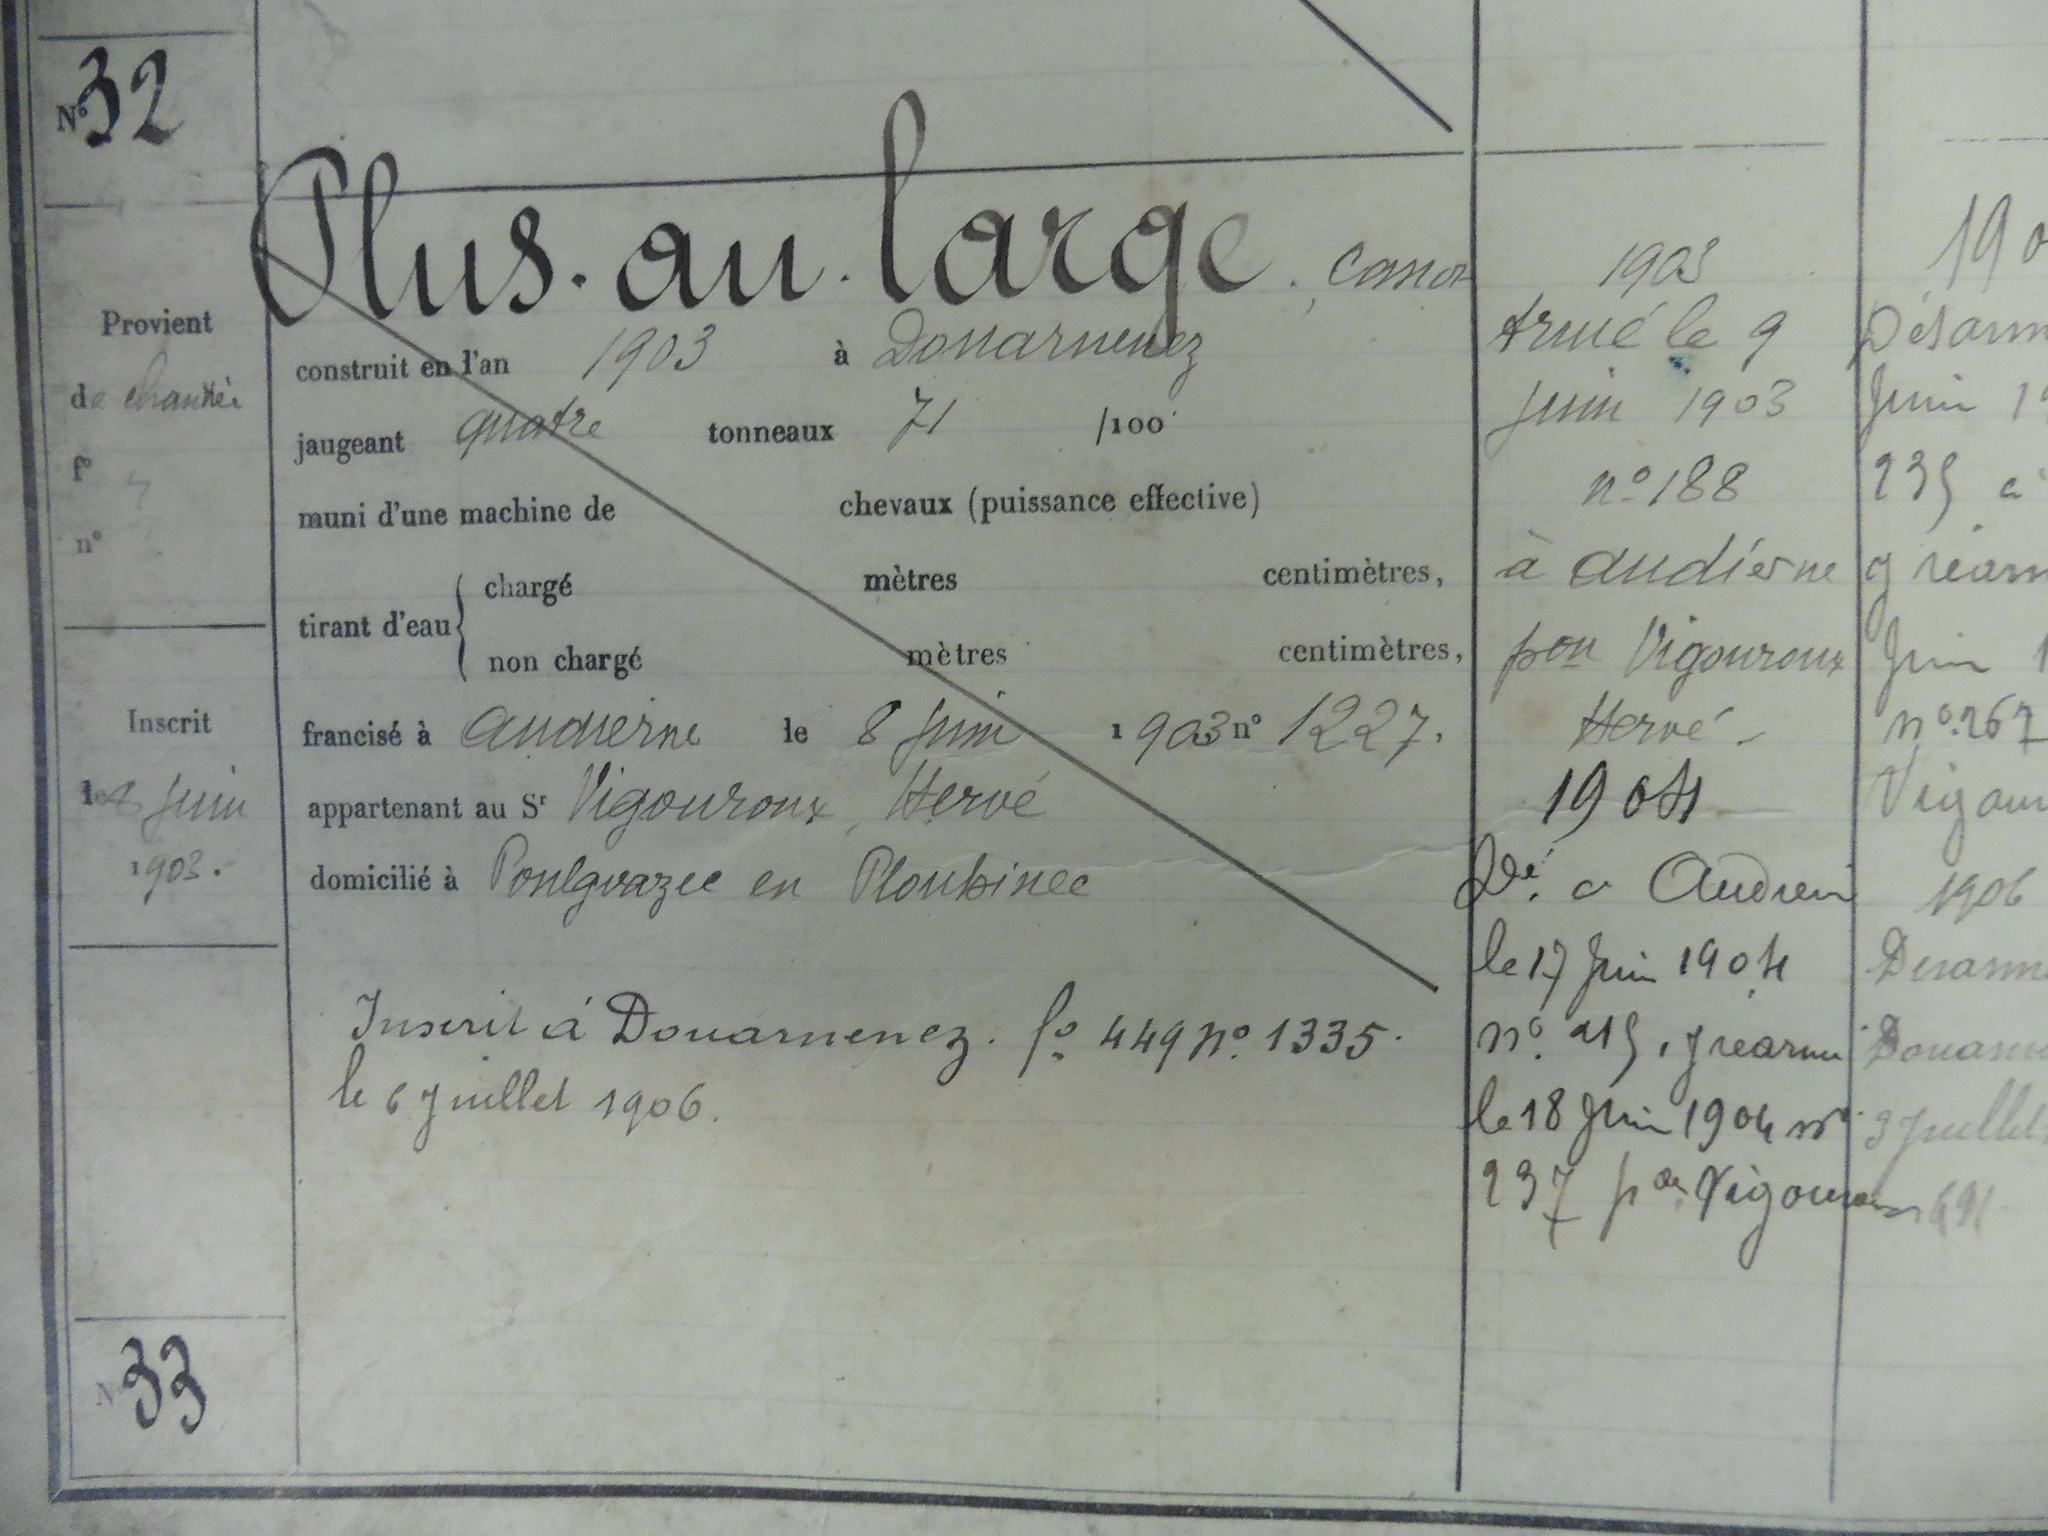 N° 32
Plus. au. large. canot
Provient
de chantier
f°
n°
construit en l'an 1903 à Douarnenez
jaugeant quatre tonneaux 71 /100
muni d'une machine de chevaux (puissance effective)
tirant d'eau
chargé mètres centimètres,
non chargé mètres centimètres,
francisé à audierne le 8 Juin 1903 n° 1227.
appartenant au Sr Vigouroux, Hervé
domicilié à Poulgoazec en Plouhinec
Inscrit
le 8 Juin
1903.
Inscrit à Douarnenez. f° 449 n° 1335.
le 6 Juillet 1906.
N° 33
1903
Armé le 9
Juin 1903
n° 188
à audierne
pon Vigouroux
Hervé
1904
Dé. a
le 17 Juin 1904
n° 215, réarmé
le 18 Juin 1904 n°
237 pon Vigouroux
190
Désarm
Juin 19
235 à
réarm
Juin 1
n° 267
Vigou
1906
Desarme
Douarne
3 Juillet
691